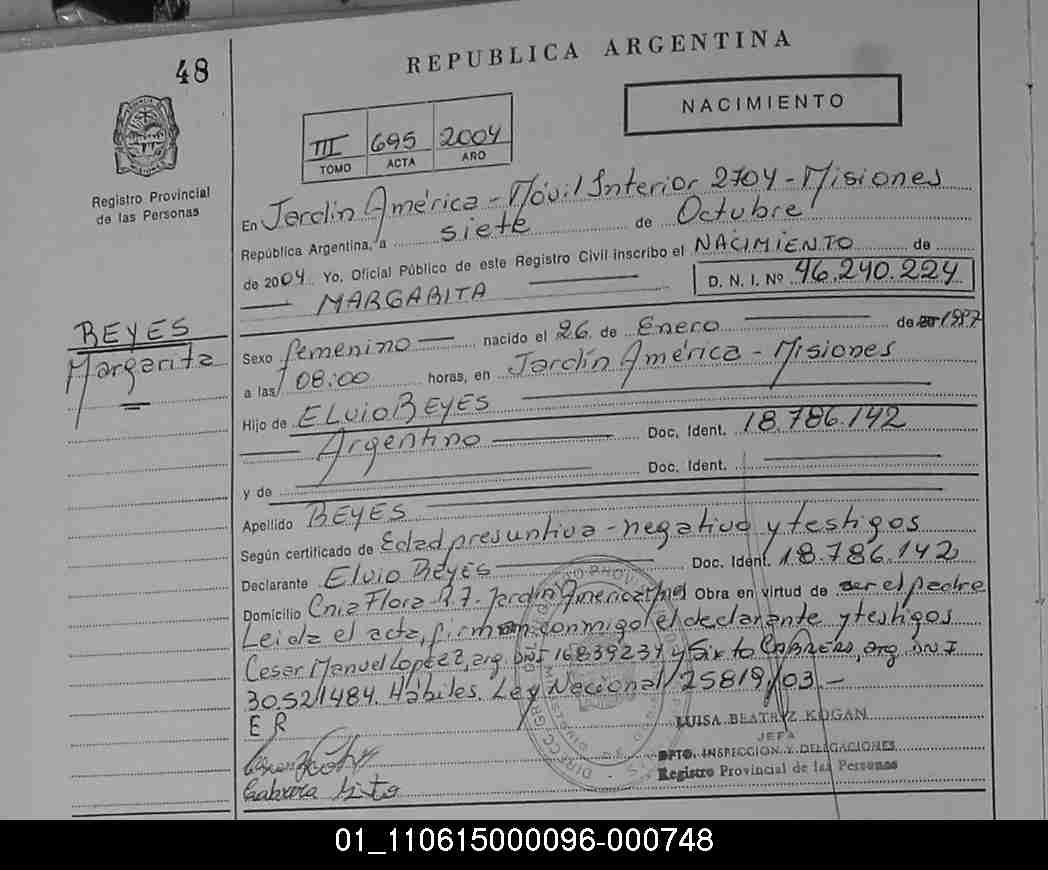 48
REPUBLICA ARGENTINA
NACIMIENTO
III 695 2004
TOMO ACTA AÑO
Registro Provincial
de las Personas
En Jardín América - Móvil Interior 2704 - Misiones
República Argentina, a siete de Octubre
de 2004. Yo, Oficial Público de este Registro Civil inscribo el NACIMIENTO de
MARGARITA D. N. I. Nº 46.240.224
REYES
Margarita
Sexo femenino nacido el 26 de Enero de 1997
a las 08:00 horas, en Jardín América - Misiones
Hijo de ELVIO REYES
Argentino Doc. Ident. 18.786.142
y de Doc. Ident.
Apellido REYES
Según certificado de Edad presuntiva - negativo y testigos
Declarante Elvio Reyes Doc. Ident. 18.786.142
Domicilio Cnia Flora - Jardín América Obra en virtud de ser el padre
Leída el acta, firman conmigo el declarante y testigos
Cesar Manuel Lopez, arg. DNI 16839234 y Sixto CABRERA, arg. DNI
30.521484. Hábiles. Ley Nacional 25819/03.-
E R
LUISA BEATRIZ KOGAN
JEFA
DPTO. INSPECCION Y DELEGACIONES
Registro Provincial de las Personas
Cabrera Sixto
01_110615000096-000748